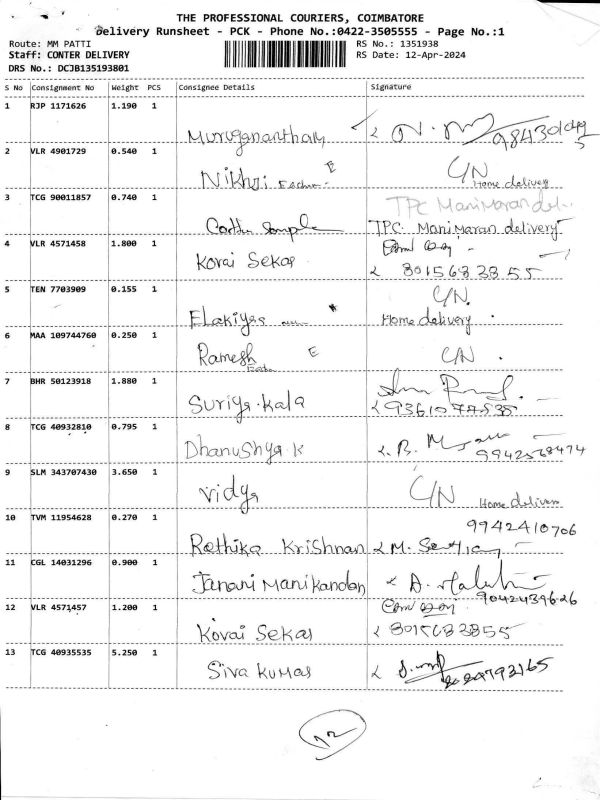 THE PROFESSIONAL COURIERS, COIMBATORE
Delivery Runsheet - PCK - Phone No.:0422-3505555 - Page No.:1
Route: MM PATTI
RS No.: 1351938
Staff: CONTER DELIVERY
RS Date: 12-Apr-2024
DRS No.: DCJB135193801
S No Consignment No Weight PCS Consignee Details Signature
1 RJP 1171626 1.190 1
Muruganantham
2 VLR 4901729 0.540 1
Nikhri E C/N
Home delivery
3 TCG 90011857 0.740 1
TPC Manimaran del
TPC. Manimaran delivery
4 VLR 4571458 1.800 1
Kovai Sekar 8015683855
5 TEN 7703909 0.155 1
C/N.
Elakiya Home delivery
6 MAA 109744760 0.250 1
Ramesh E C/N
7 BHR 50123918 1.880 1
Suriya.Kala
8 TCG 40932810 0.795 1
Dhanushya.K
9942568474
9 SLM 343707430 3.650 1
Vidya C/N Home delivery
10 TVM 11954628 0.270 1
9942410706
Rethika Krishnan
11 CGL 14031296 0.900 1
Janani Manikandan
9042439626
12 VLR 4571457 1.200 1
Kovai Sekar 8015683855
13 TCG 40935535 5.250 1
Siva Kumar
12